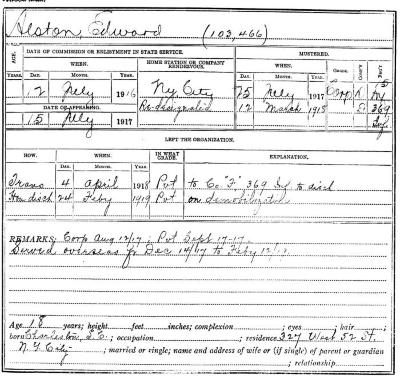 Alston Edward (102,466)
DATE OF COMMISSION OR ENLISTMENT IN STATE SERVICE. MUSTERED.
AGE. WHEN. HOME STATION OR COMPANY RENDEZVOUS. WHEN. GRADE. CO'Y REG'T
YEARS. DAY. MONTH. YEAR. DAY. MONTH. YEAR.
12 July 1916 Ny City 25 July 1917 Corp K 15 Ny
DATE OF APPEARING. Re-designated 12 March 1918 369
15 July 1917 Inf
LEFT THE ORGANIZATION.
HOW. WHEN. IN WHAT GRADE. EXPLANATION.
DAY. MONTH. YEAR.
Trans 4 April 1918 Pvt to Co "F" 369 Inf to disch
Hon disch 24 Feby 1919 Pvt on demobilization
REMARKS: Corp Aug 12/17; Pvt Sept 17-17.
Served overseas fr Dec 14/17 to Feby 12/19.
Age 18 years; height feet inches; complexion ; eyes ; hair ;
born Charleston, S.C.; occupation ; residence 327 West 52 St.
N.Y. City ; married or single; name and address of wife or (if single) of parent or guardian
; relationship.